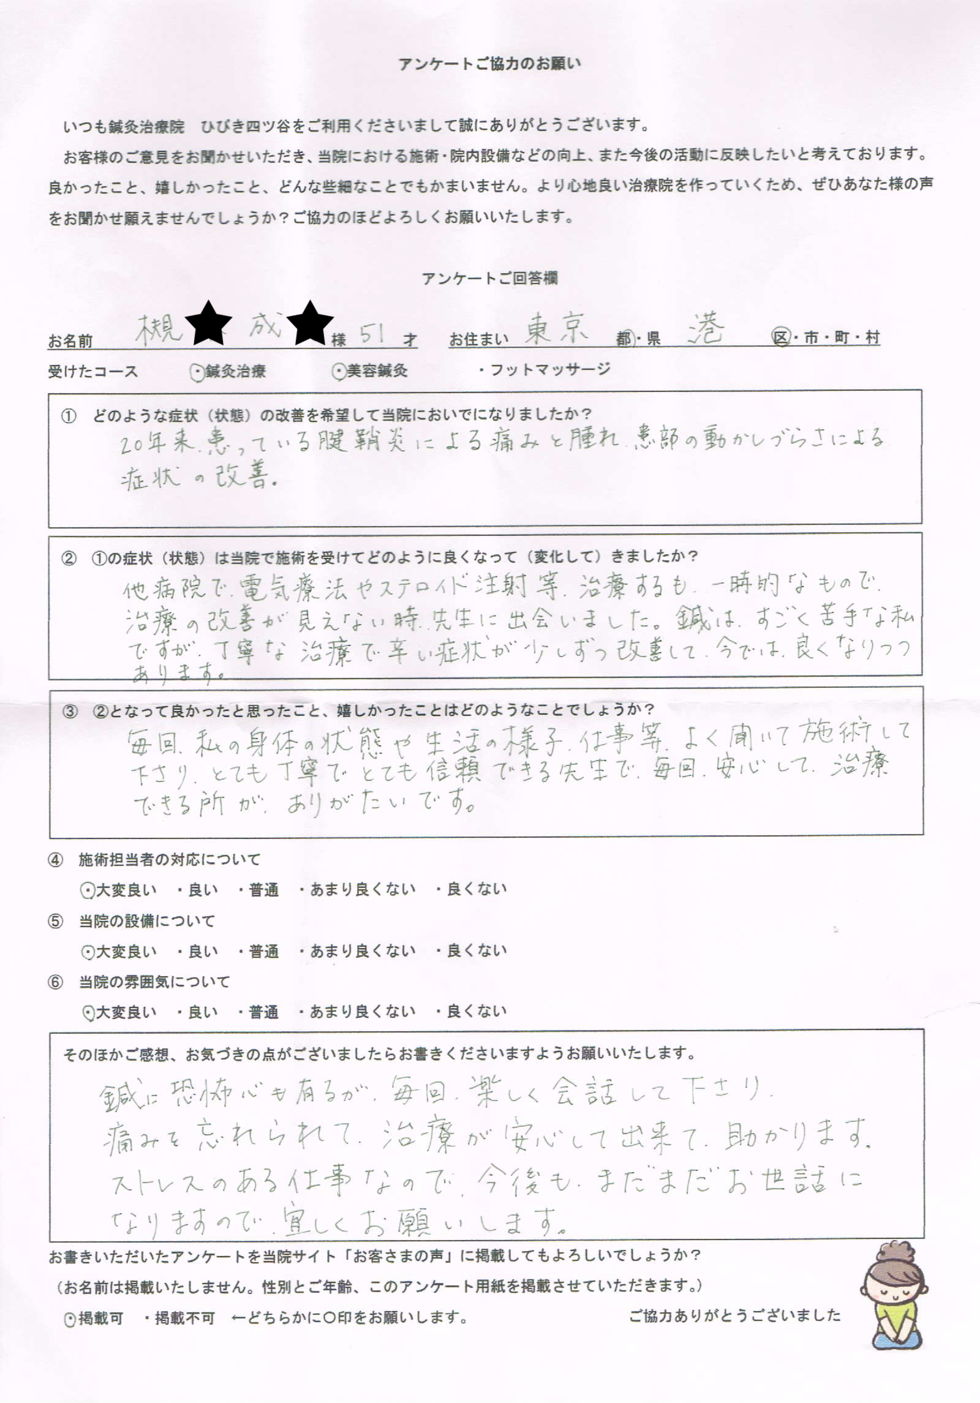 アンケートご協力のお願い
いつも鍼灸治療院 ひびき四ツ谷をご利用くださいまして誠にありがとうございます。
お客様のご意見をお聞かせいただき、当院における施術・院内設備などの向上、また今後の活動に反映したいと考えております。
良かったこと、嬉しかったこと、どんな些細なことでもかまいません。より心地良い治療院を作っていくため、ぜひあなた様の声
をお聞かせ願えませんでしょうか？ご協力のほどよろしくお願いいたします。
アンケートご回答欄
お名前 槻 成 様 51 才 お住まい 東京 都・県 港 区・市・町・村
受けたコース ・鍼灸治療 ・美容鍼灸 ・フットマッサージ
① どのような症状（状態）の改善を希望して当院においでになりましたか？
20年来、患っている腱鞘炎による痛みと腫れ、患部の動かしづらさによる
症状の改善。
② ①の症状（状態）は当院で施術を受けてどのように良くなって（変化して）きましたか？
他病院で、電気療法やステロイド注射等、治療するも、一時的なもので、
治療の改善が見えない時、先生に出会いました。鍼は、すごく苦手な私
ですが、丁寧な治療で辛い症状が少しずつ改善して、今では、良くなりつつ
あります。
③ ②となって良かったと思ったこと、嬉しかったことはどのようなことでしょうか？
毎回、私の身体の状態や生活の様子、仕事等、よく聞いて施術して
下さり、とても丁寧でとても信頼できる先生で、毎回、安心して、治療
できる所が、ありがたいです。
④ 施術担当者の対応について
・大変良い ・良い ・普通 ・あまり良くない ・良くない
⑤ 当院の設備について
・大変良い ・良い ・普通 ・あまり良くない ・良くない
⑥ 当院の雰囲気について
・大変良い ・良い ・普通 ・あまり良くない ・良くない
そのほかご感想、お気づきの点がございましたらお書きくださいますようお願いいたします。
鍼に恐怖心も有るが、毎回、楽しく会話して下さり、
痛みを忘れられて、治療が安心して出来て、助かります。
ストレスのある仕事なので、今後も、まだまだお世話に
なりますので、宜しくお願いします。
お書きいただいたアンケートを当院サイト「お客さまの声」に掲載してもよろしいでしょうか？
（お名前は掲載いたしません。性別とご年齢、このアンケート用紙を掲載させていただきます。）
・掲載可 ・掲載不可 ←どちらかに○印をお願いします。 ご協力ありがとうございました